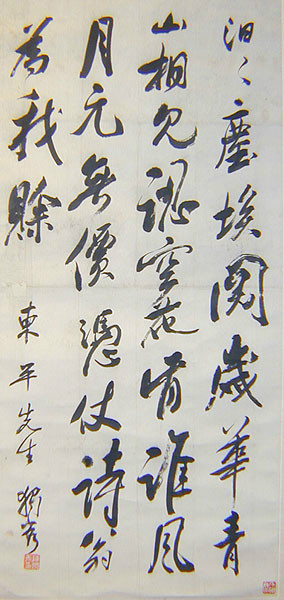 汩々塵埃閱歲華青
山相見認空花誰風
月元無價憑仗詩翁
為我賒
東平先生 獨秀